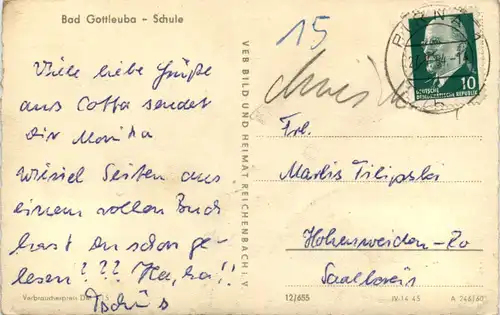 Bad Gottleuba - Schule
Viele liebe Grüße
aus Cotta sendet
Dir Monika
wieviel Seiten aus
einem vollen Buch
hast du schon ge-
lesen??? Ha, ha!!
Tschüs
Verbraucherpreis DM 0,15
VEB BILD UND HEIMAT REICHENBACH i. V.
15
PIRNA
DEUTSCHE
DEMOKRATISCHE REPUBLIK
10
Frl.
Marlis Filipski
Hohenweiden-Ro
Saalkreis
12/655
IV-14-45
A 246/60